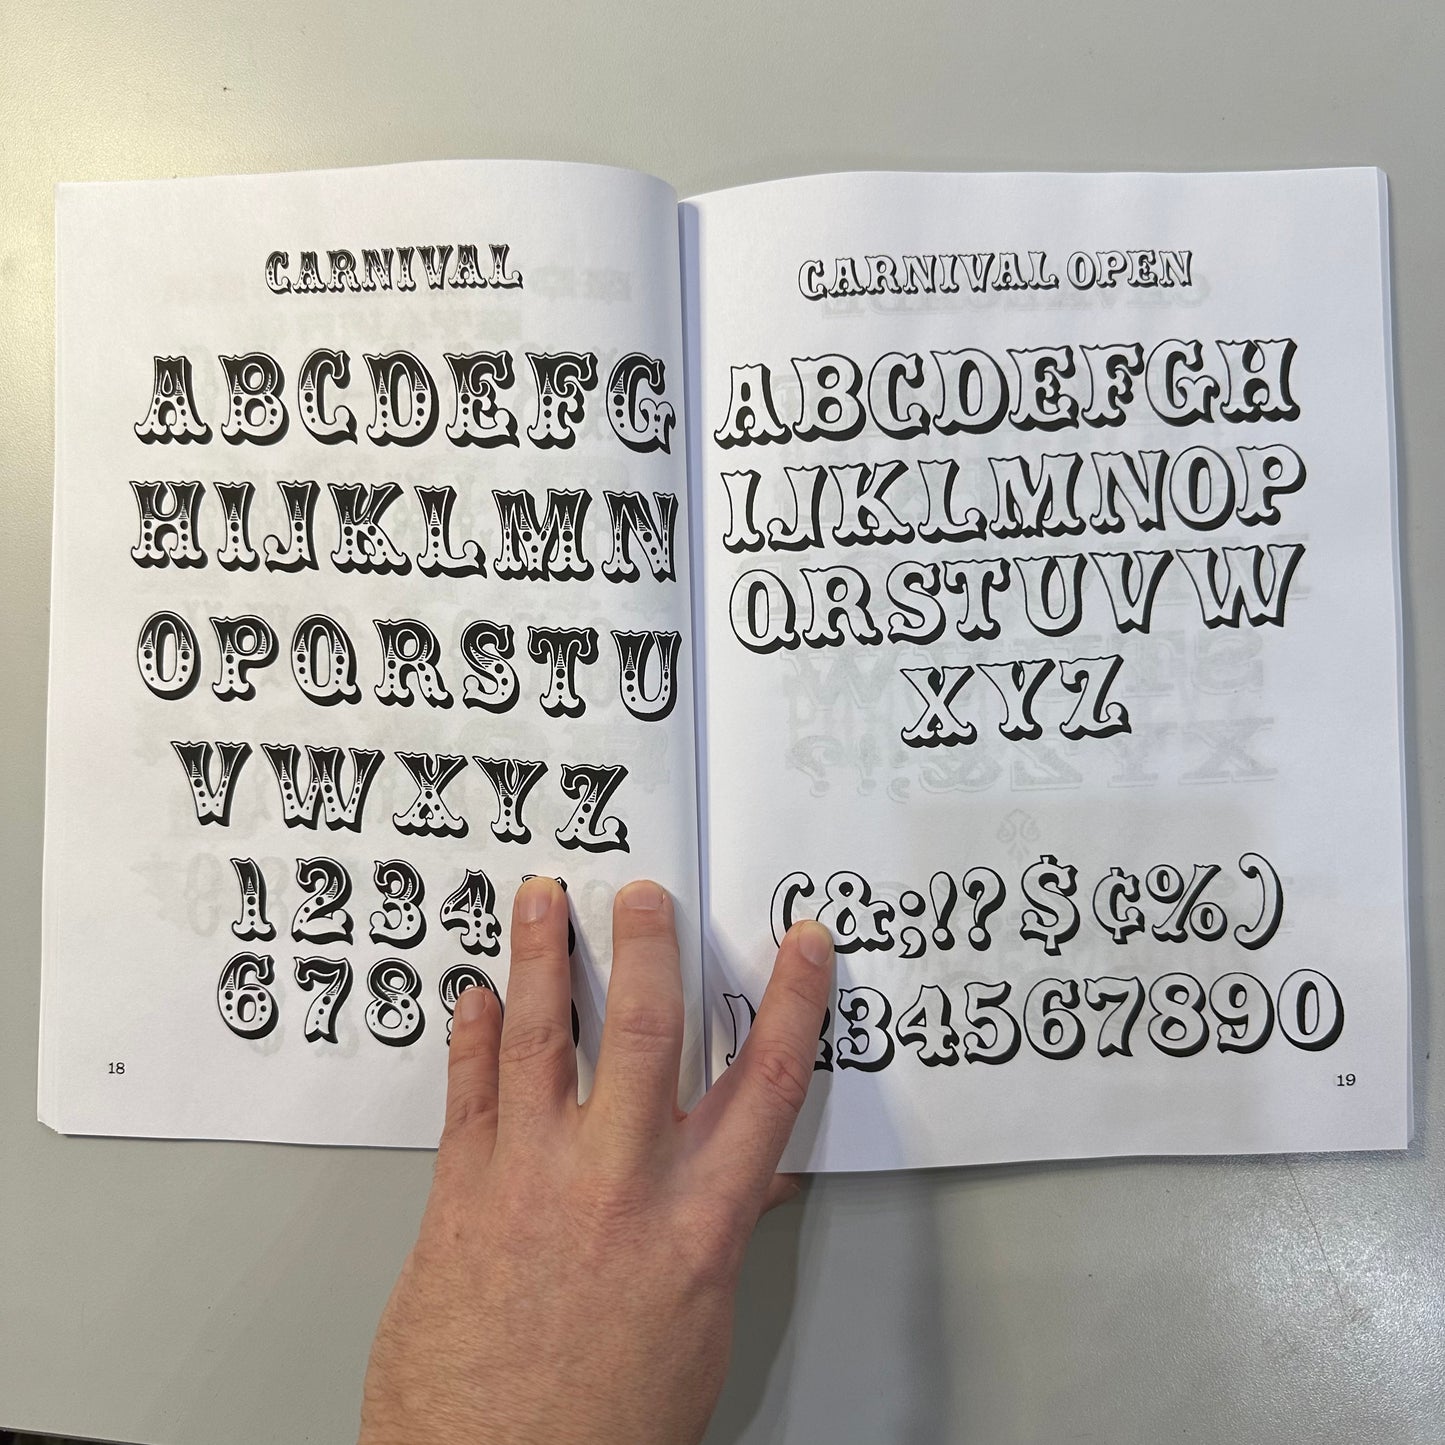 CARNIVAL
ABCDEFG
HIJKLMN
OPQRSTU
VWXYZ
1234
6789
18
CARNIVAL OPEN
ABCDEFGH
IJKLMNOP
QRSTUVW
XYZ
(&;!?$¢%)
1234567890
19